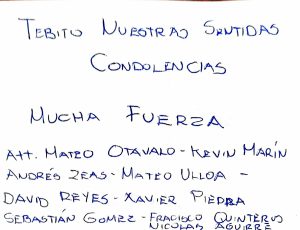 TEBITO NUESTRAS SENTIDAS
CONDOLENCIAS
MUCHA FUERZA
ATT. MATEO OTAVALO - KEVIN MARÍN
ANDRÉS ZEAS - MATEO ULLOA -
DAVID REYES - XAVIER PIEDRA
SEBASTIÁN GOMEZ - FRACISCO QUINTEROS
NICOLAS AGUIRRE